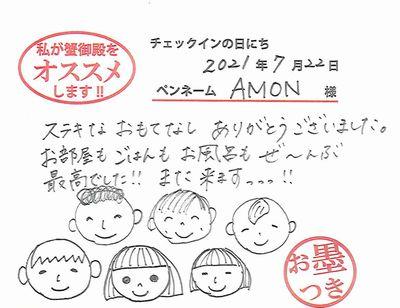 私が蟹御殿を
オススメ
します!!
チェックインの日にち
2021年7月22日
ペンネーム AMON 様
ステキな おもてなし ありがとうございました。
お部屋も ごはんも お風呂も ぜ〜んぶ
最高でした!! また 来ますっっっ!!
お墨
つき